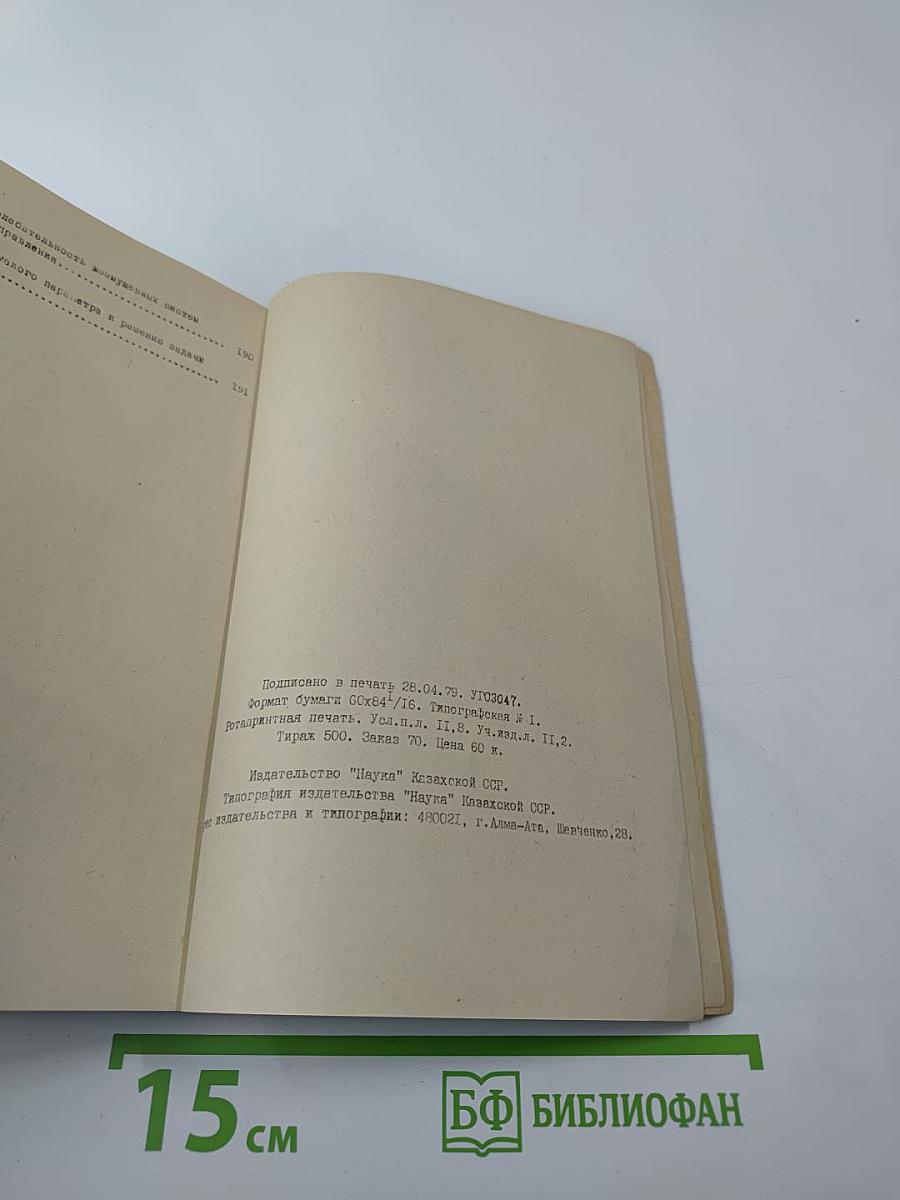 возмущенных систем
190
малого параметра и решение задачи
191
Подписано в печать 28.04.79. УГ03047.
Формат бумаги 60х84 I/I6. Типографская № I.
Ротапринтная печать. Усл.п.л. II,8. Уч.изд.л. II,2.
Тираж 500. Заказ 70. Цена 60 к.
Издательство "Наука" Казахской ССР.
Типография издательства "Наука" Казахской ССР.
издательства и типографии: 48002I, г.Алма-Ата, Шевченко,28.
15 см
БФ БИБЛИОФАН